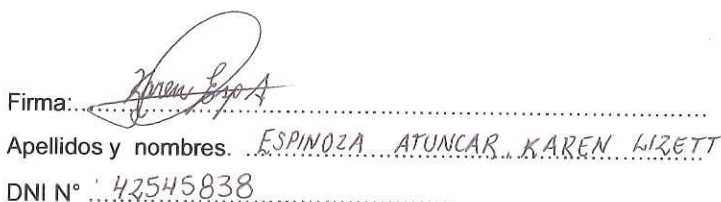 Firma: Karen Esp A
Apellidos y nombres. ESPINOZA ATUNCAR KAREN LIZETT
DNI N° 42545838